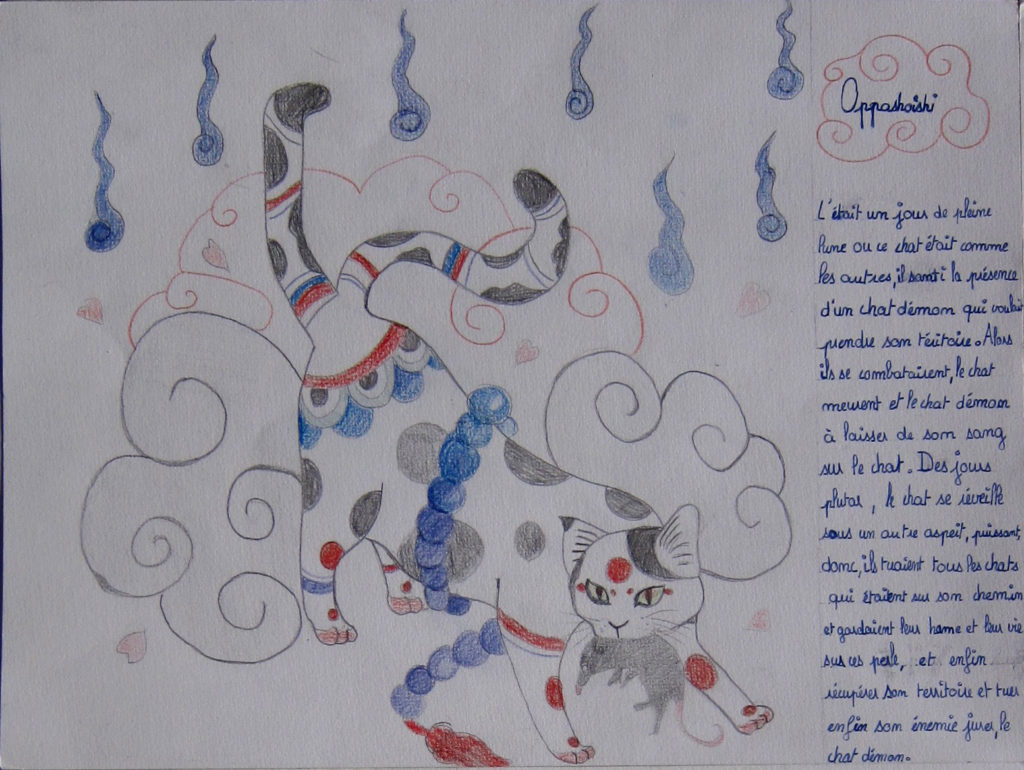 Oppashoishi
L'était un jour de pleine
lune ou ce chat était comme
les autres, il santi la présence
d'un chat démon qui voulait
prendre son téritoire. Alors
ils se combatairent, le chat
meurent et le chat démon
à laisser de son sang
sur le chat. Des jours
plutar, le chat se réveille
sous un autre aspeit, puissant,
donc, ils tuaient tous les chats
qui étaient sur son chemin
et gardaient leur hame et leur vie
sus ces perle, et enfin
récupérer son territoire et tuer
enfin son énemie jurer, le
chat démon.